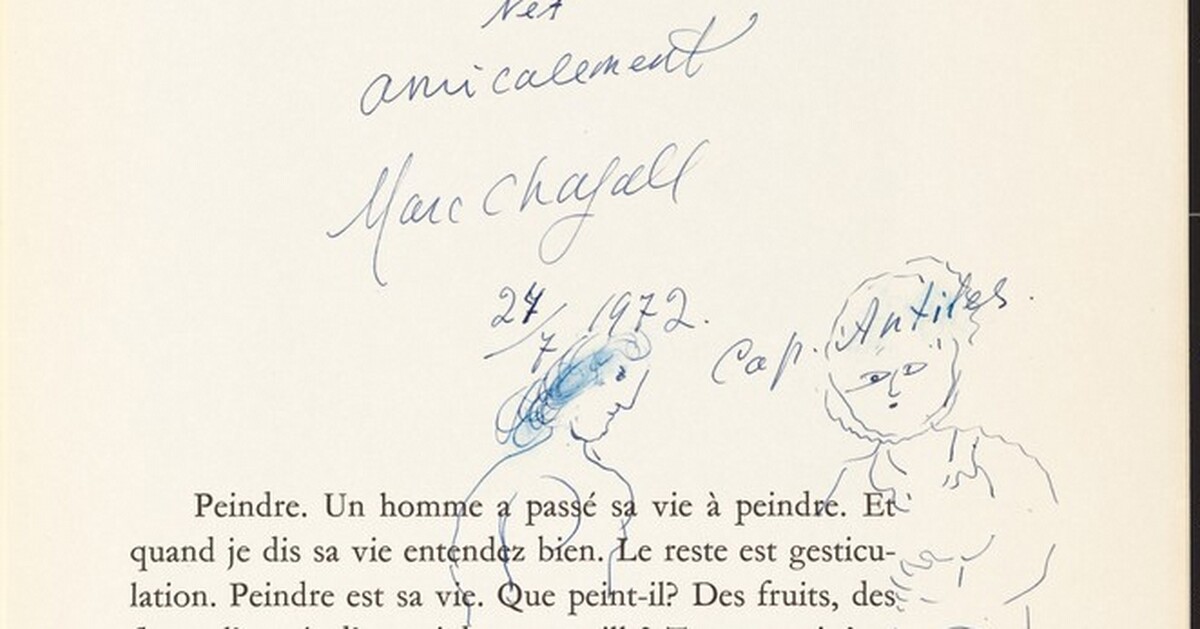 amicalement
Marc Chagall
27/7 1972.
Cap. Antibes.
Peindre. Un homme a passé sa vie à peindre. Et
quand je dis sa vie entendez bien. Le reste est gesticu-
lation. Peindre est sa vie. Que peint-il? Des fruits, des